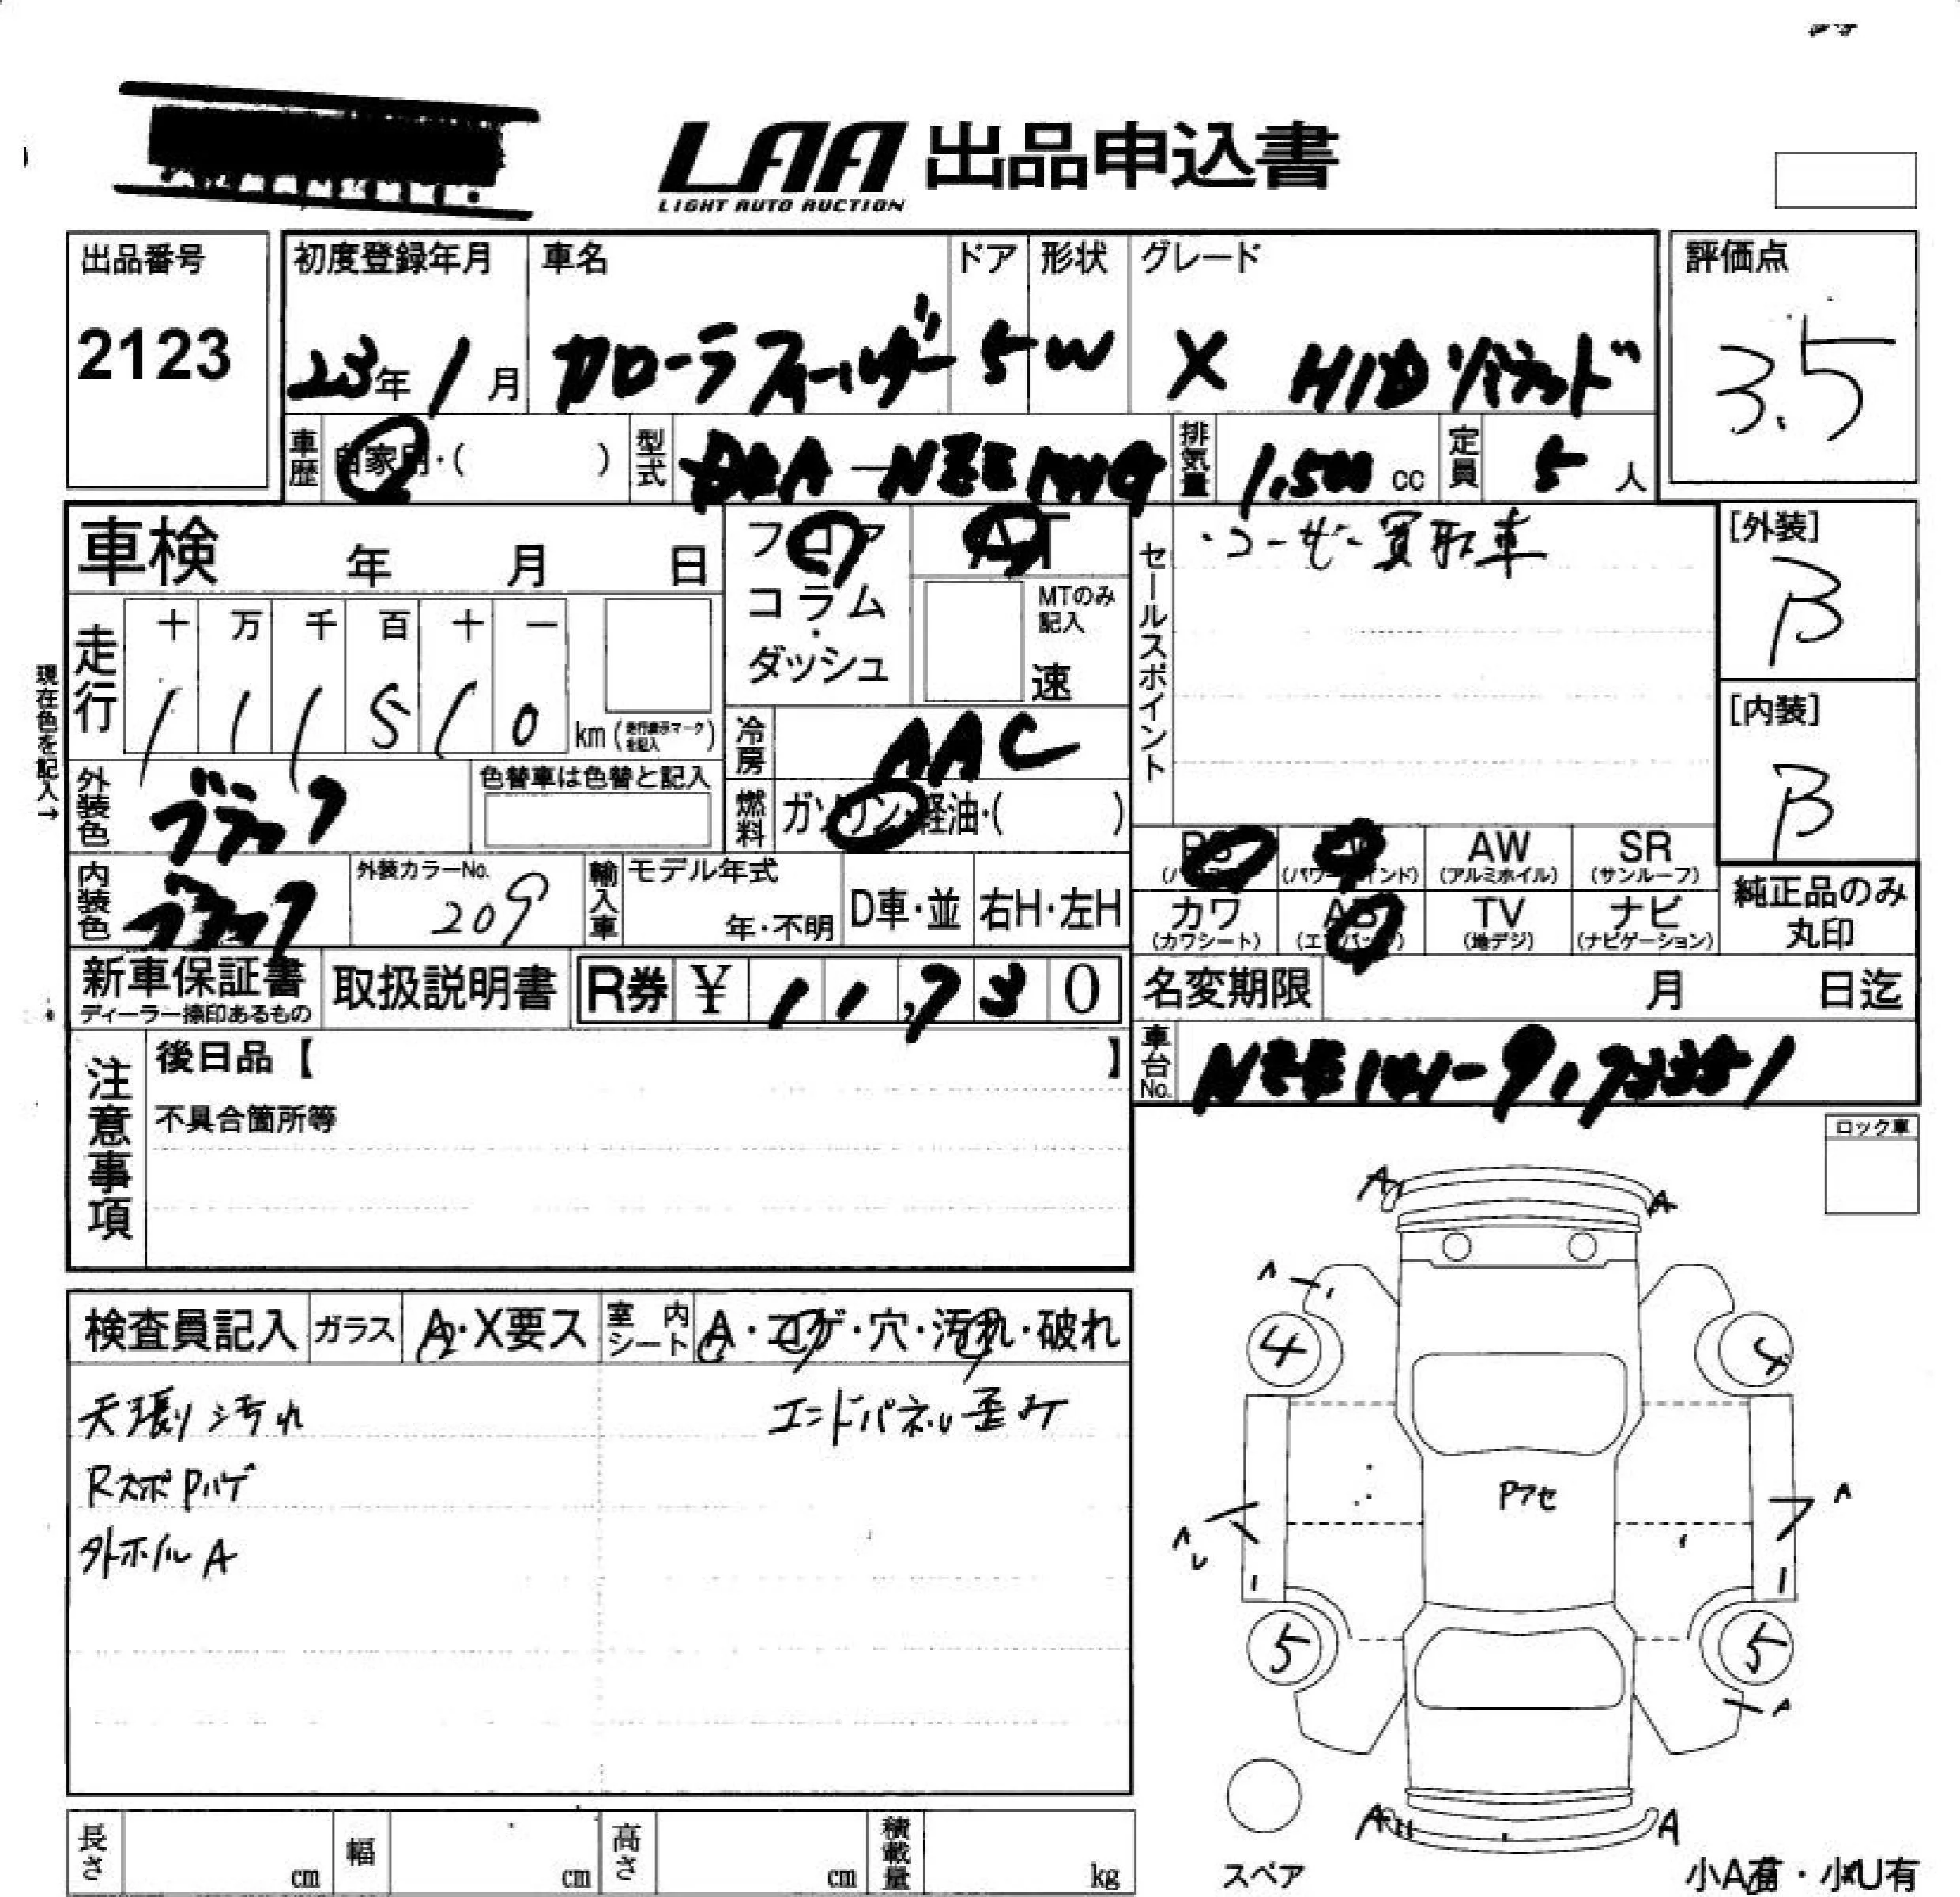 LAA 出品申込書
LIGHT AUTO AUCTION
出品番号
2123
初度登録年月
23年 1月
車名
カローラフィールダー
ドア
5
形状
W
グレード
X HIDリミテッド
評価点
3.5
車歴 自家用・( )
型式 DBA-NZE141G
排気量 1,500 cc
定員 5 人
車検 年 月 日
フロア
コラム
・
ダッシュ
AT
MTのみ記入
速
セールスポイント
・ユーザー買取車
[外装]
B
[内装]
B
現在色を記入→
走行
十 万 千 百 十 一
1 1 1 5 1 0 km (走行表示マークを記入)
冷房 AAC
燃料 ガソリン・軽油・( )
外装色 ブラック
色替車は色替と記入
内装色 ブラック
外装カラーNo.
209
輸入車 モデル年式
年・不明
D車・並 右H・左H
PS (パワステ)
PW (パワーウインド)
AW (アルミホイル)
SR (サンルーフ)
カワ (カワシート)
AB (エアバッグ)
TV (地デジ)
ナビ (ナビゲーション)
純正品のみ
丸印
新車保証書
ディーラー捺印あるもの
取扱説明書
R券 ¥ 11,730
名変期限 月 日迄
車台No. NZE141-
注意事項
後日品【 】
不具合箇所等
ロック車
検査員記入 ガラス A・X要ス 室内シート A・コゲ・穴・汚れ・破れ
天張り汚れ
エンドパネル歪みケ
RスポPハゲ
外ホイルA
A A
A
4 4
Pアセ
A A
U
5 5
A
A A
スペア
小A有・小U有
長さ cm 幅 cm 高さ cm 積載量 kg